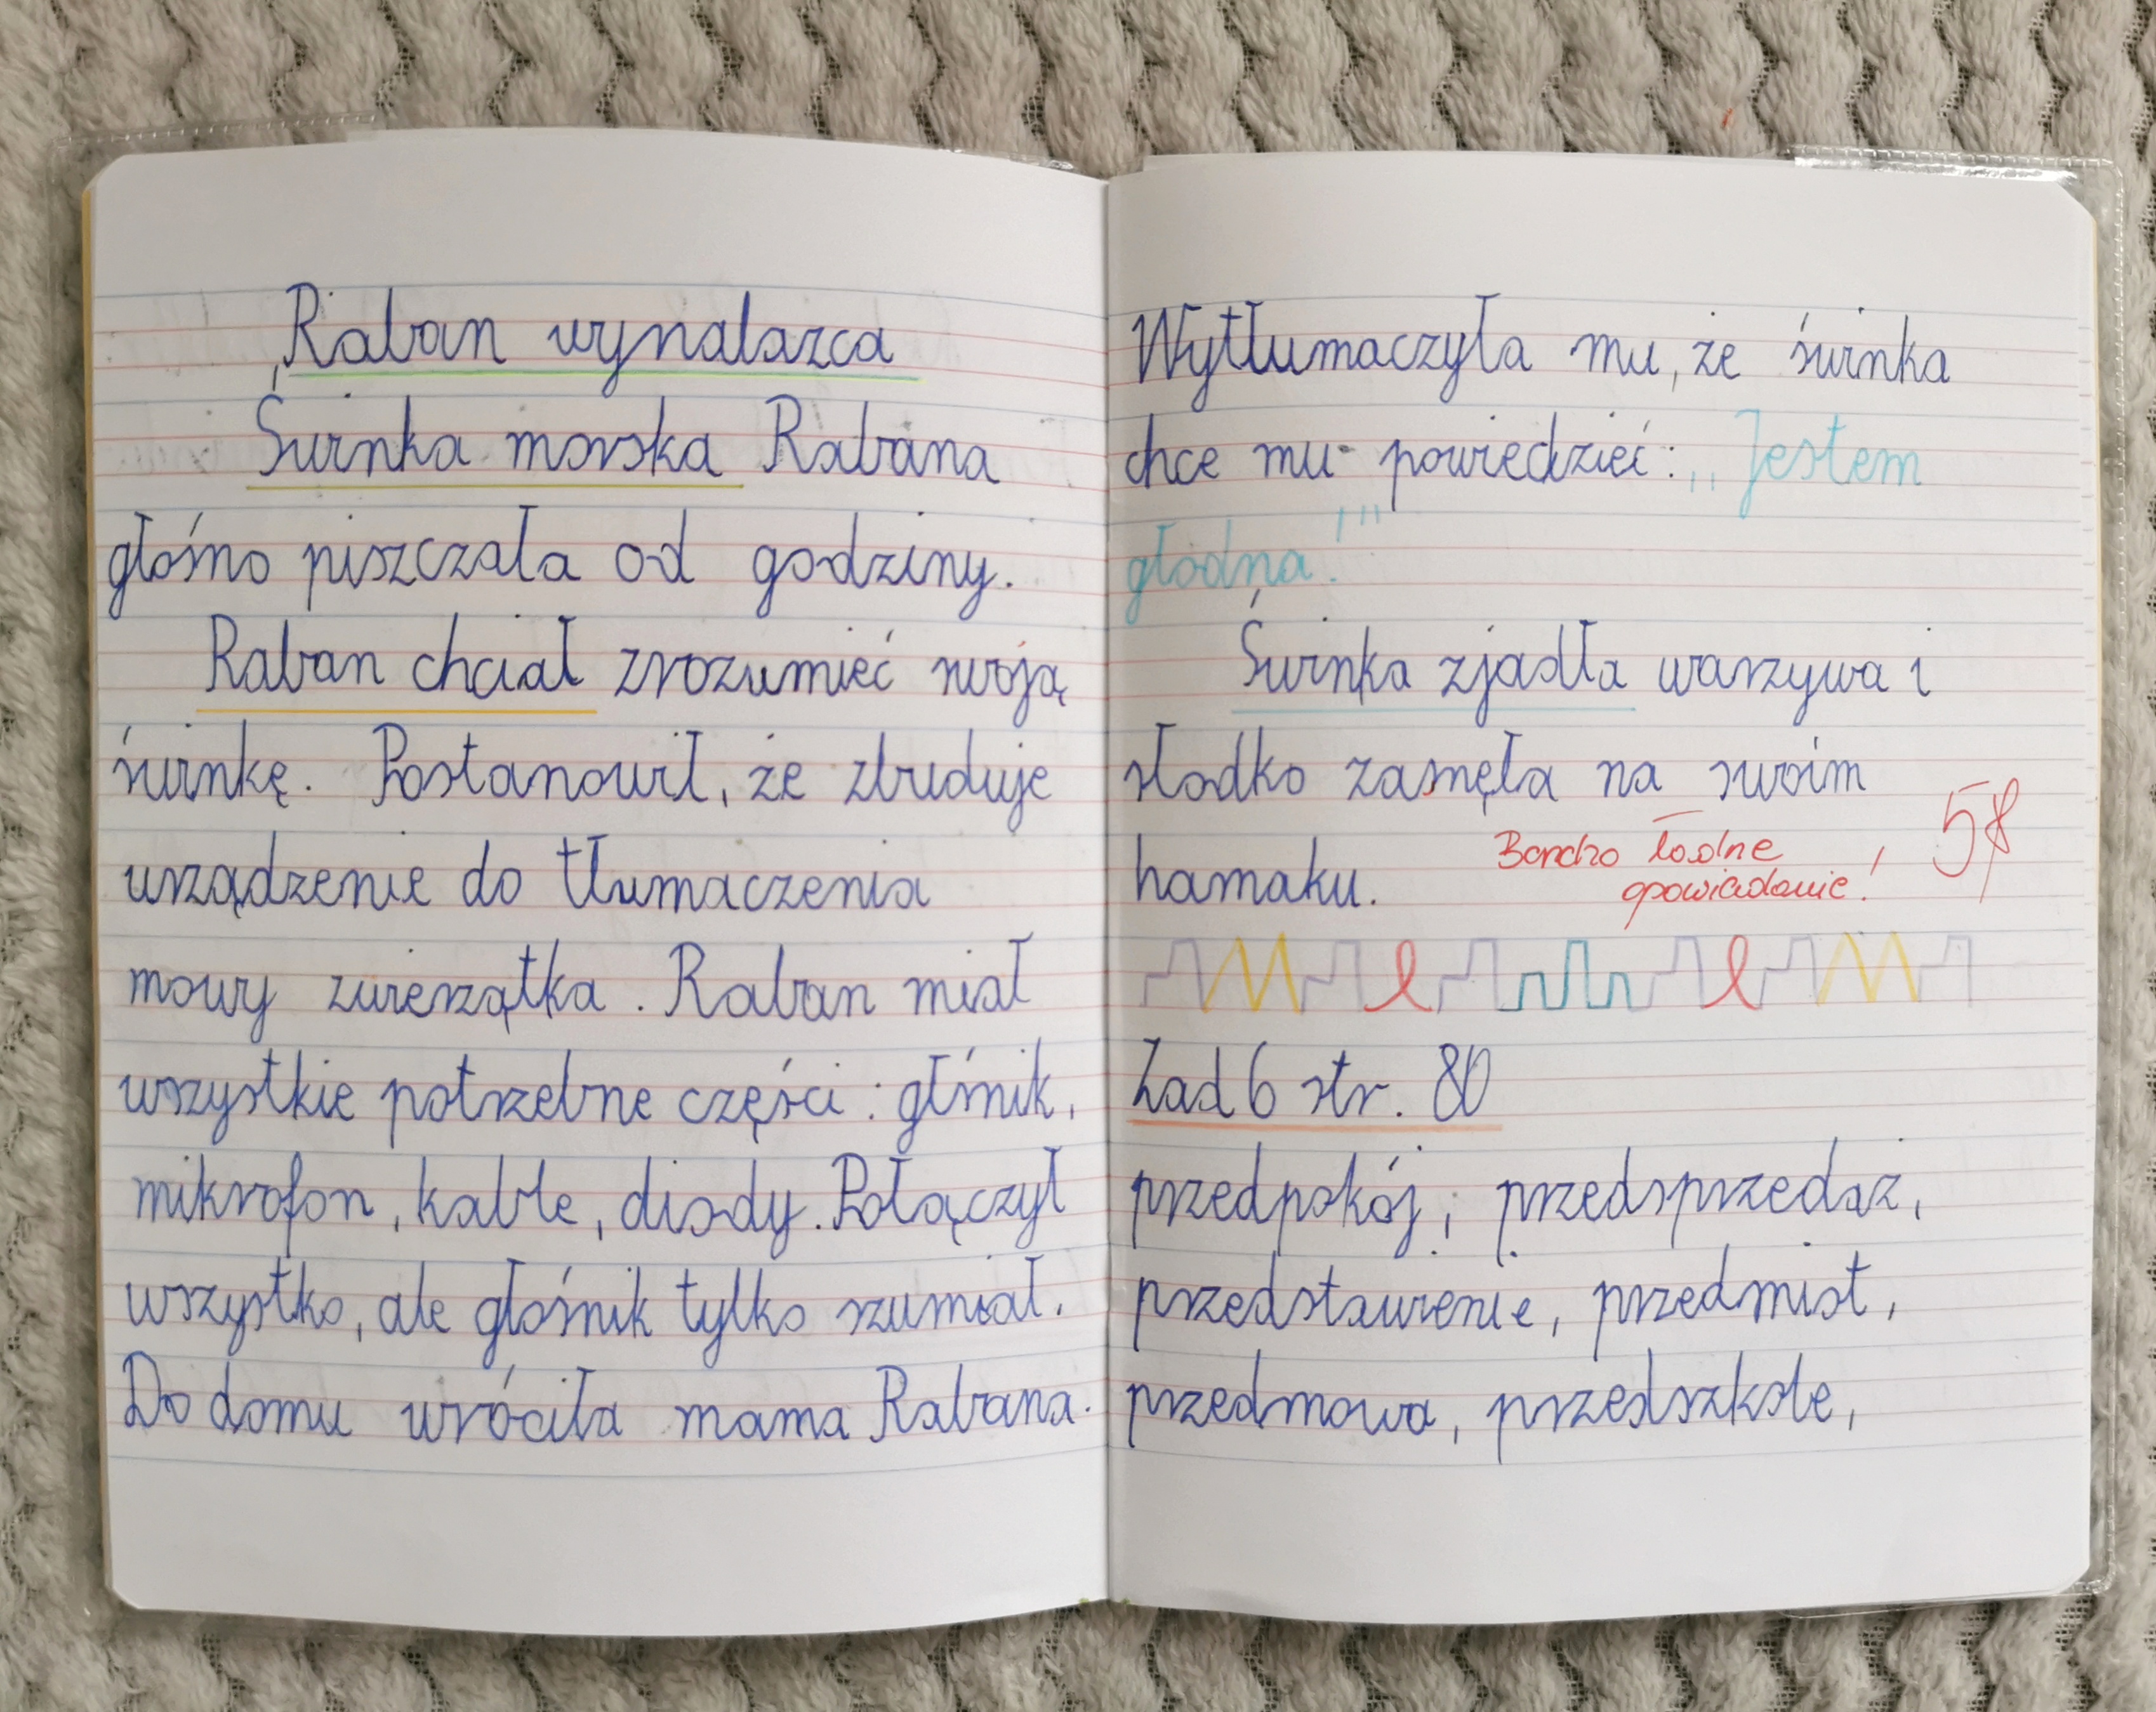 Raban wynalazca
Świnka morska Rabana
głośno piszczała od godziny.
Raban chciał zrozumieć swoją
świnkę. Postanowił, że zbuduje
urządzenie do tłumaczenia
mowy zwierzątka. Raban miał
wszystkie potrzebne części: głśnik,
mikrofon, kable, diody. Połączył
wszystko, ale głośnik tylko szumiał.
Do domu wróciła mama Rabana.
Wytłumaczyła mu, że świnka
chce mu powiedzieć: „Jestem
głodna!"
Świnka zjadła warzywa i
słodko zasnęła na swoim
hamaku.
Bardzo ładne
opowiadanie!
Zad 6 str. 80
przedpokój, przedsprzedaż,
przedstawienie, przedmiot,
przedmowa, przedszkole,